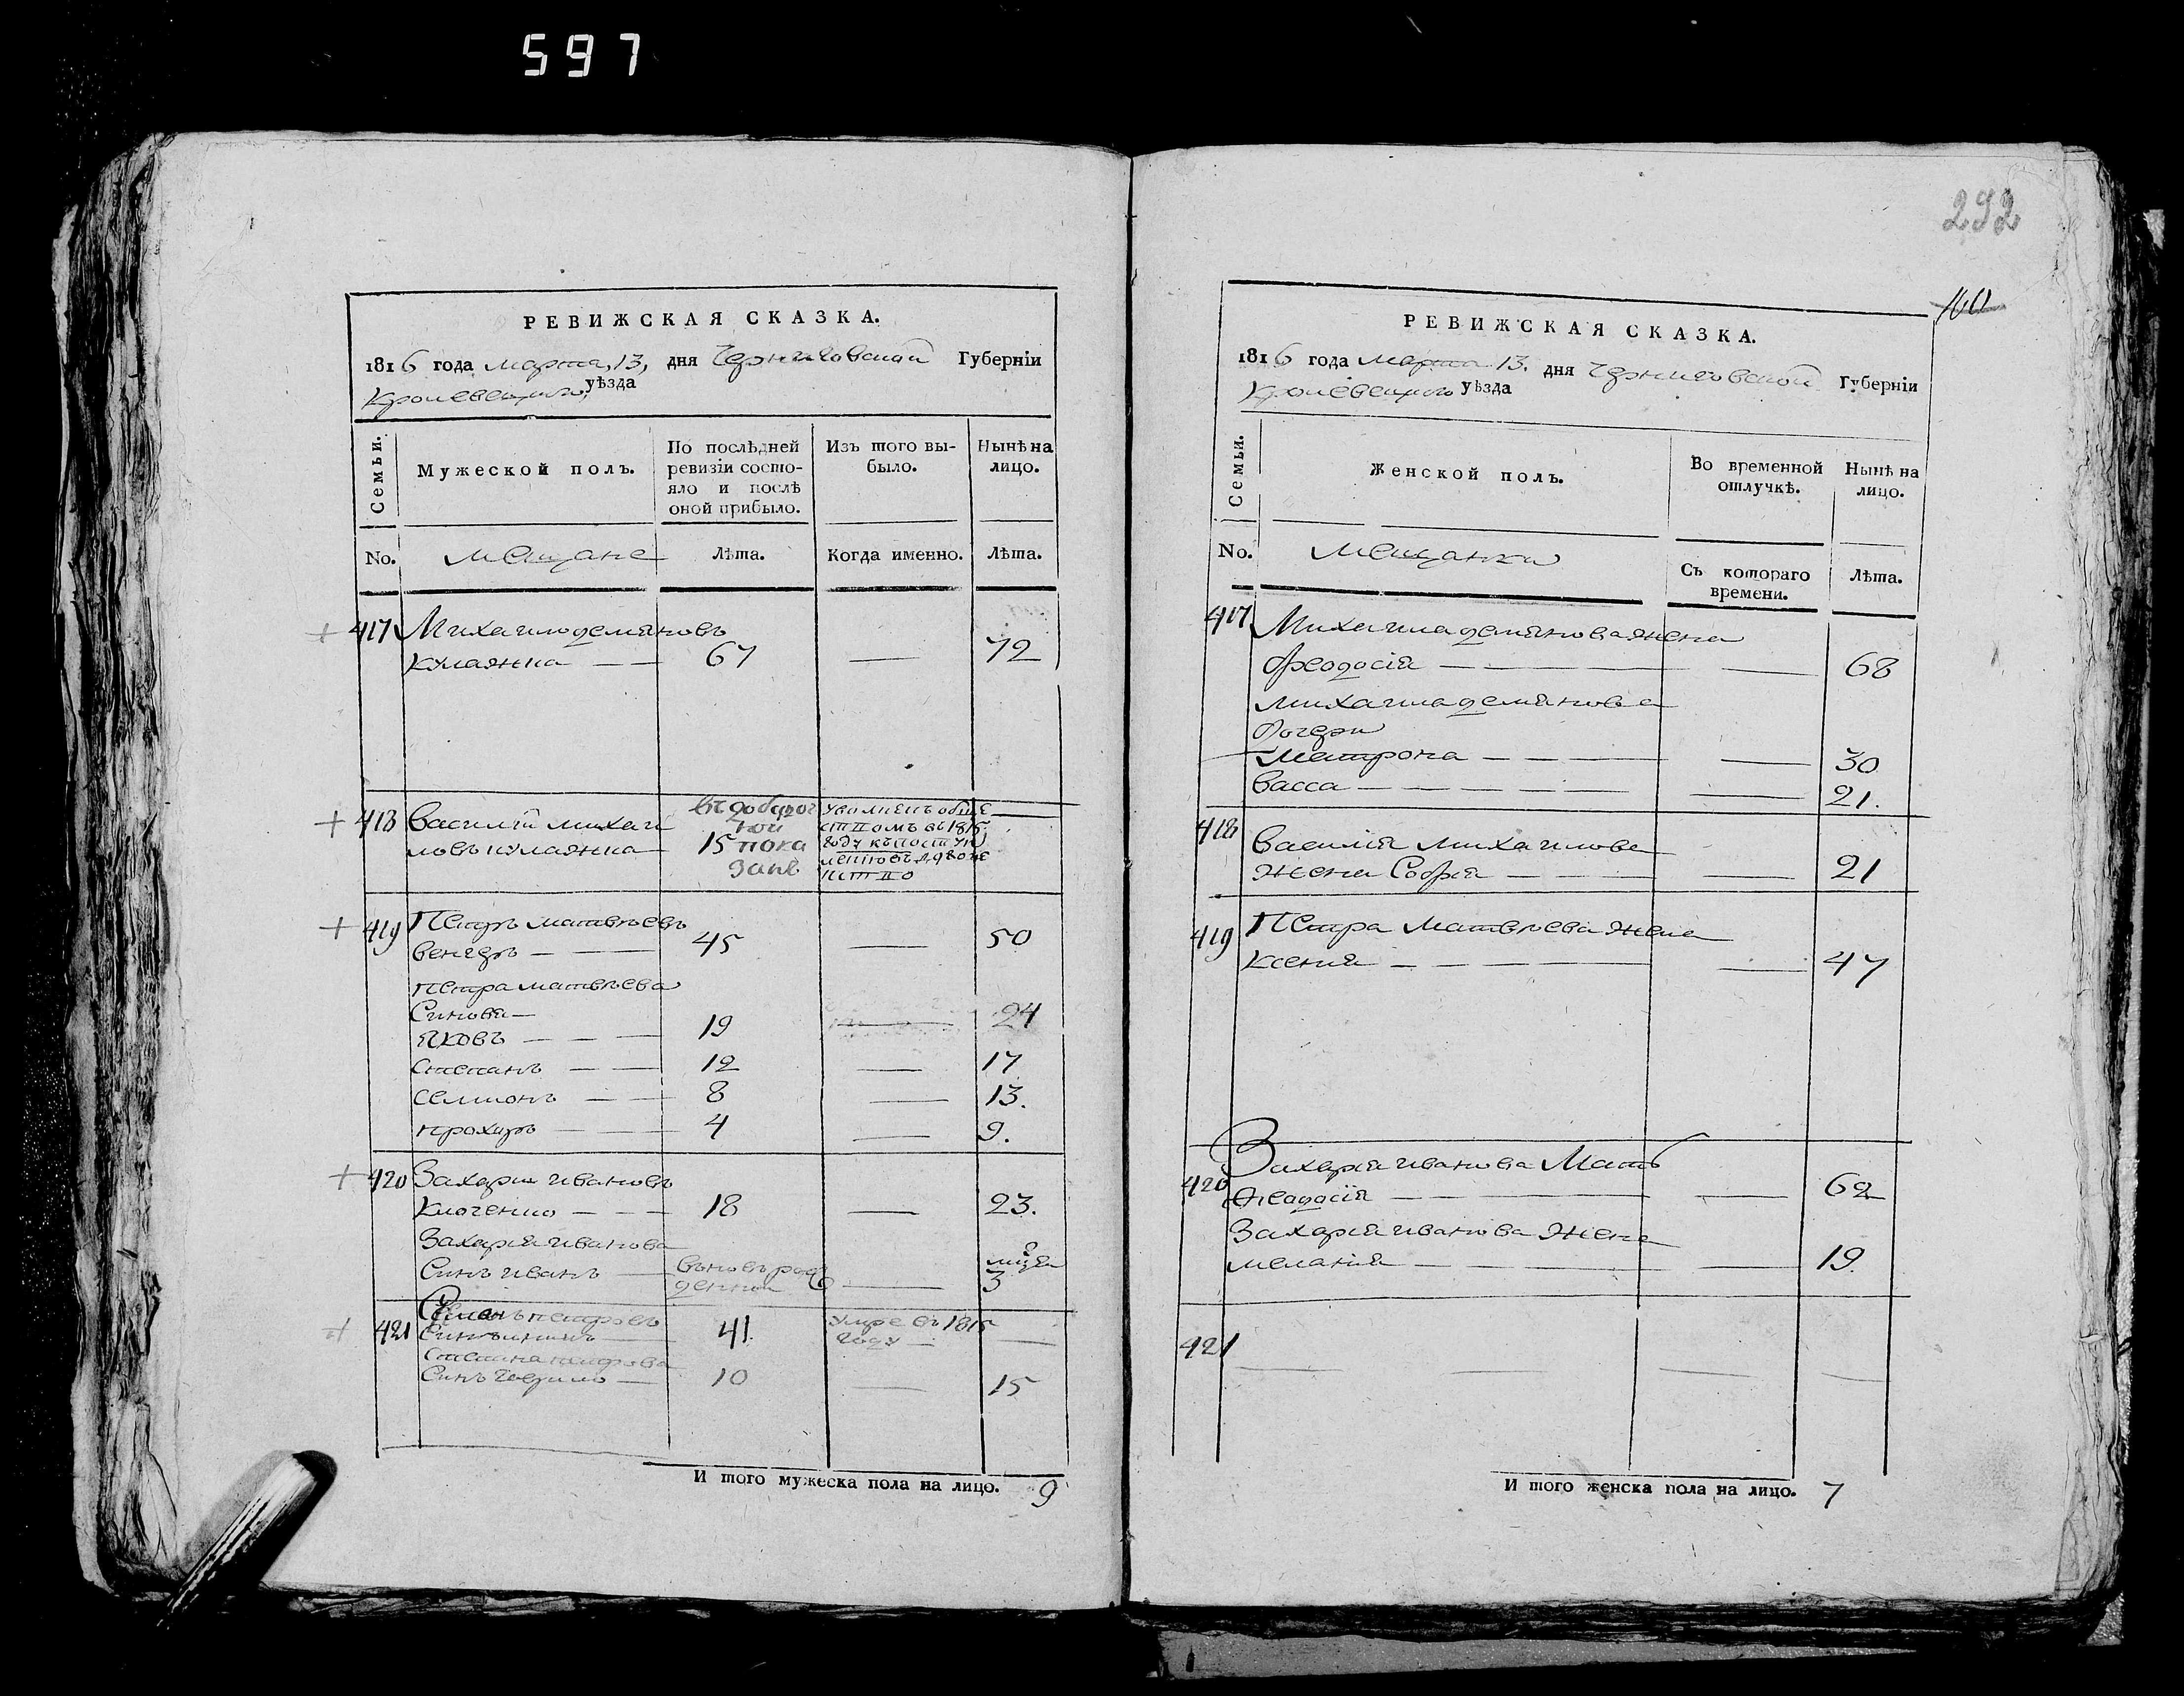 597
292
РЕВИЖСКАЯ СКАЗКА.
1816 года марта, 13, дня Черниговской Губерніи
Кролевецкого уѣзда
Семьи.
Мужеской полъ.
По послѣдней ревизіи состо-
яло и послѣ
оной прибыло.
Изъ того вы-
было.
Нынѣ на
лицо.
No.
мещане
Лѣта.
Когда именно.
Лѣта.
417 Михаило демяновъ
кулажка 67 — 72
418 Василій михаи
ловъ кулажка 15
въ добавоч
ной
пока
занъ
уволненъ обще
ством въ 1815
году къ поступ
лению въ
419 Петръ матвѣевъ
венгеръ — 45 — 50
петра матвѣева
Синови —
яковъ — 19 — 24
степанъ — 12 — 17
семионъ — 8 — 13.
прохоръ — 4 — 9.
420 Захари ивановъ
Клоченко — 18 — 23.
Захария иванова
Синъ иванъ — вновь рож
денной — 3
421 петровъ
41. умре въ 1815
году —
петрова
Синъ 10 — 15
И того мужеска пола на лицо. 9
РЕВИЖСКАЯ СКАЗКА.
1816 года марта 13. дня Черниговской Губерніи
Кролевецкого уѣзда
Семьи.
Женской полъ.
Во временной
отлучкѣ.
Нынѣ на
лицо.
No.
Мещанки
Съ котораго
времени.
Лѣта.
417 Михаила демянова жена
Феодосія — 68
михаила демянова
дочери
Матрона — 30
васса — 21.
418 Василія михаилова
жена Софія — 21
419 Петра Матвѣева жена
Ксения — 47
420 Захарія иванова Мать
Феодосія — 62
Захарія иванова жена
мелания — 19.
421 — — — —
И того женска пола на лицо. 7